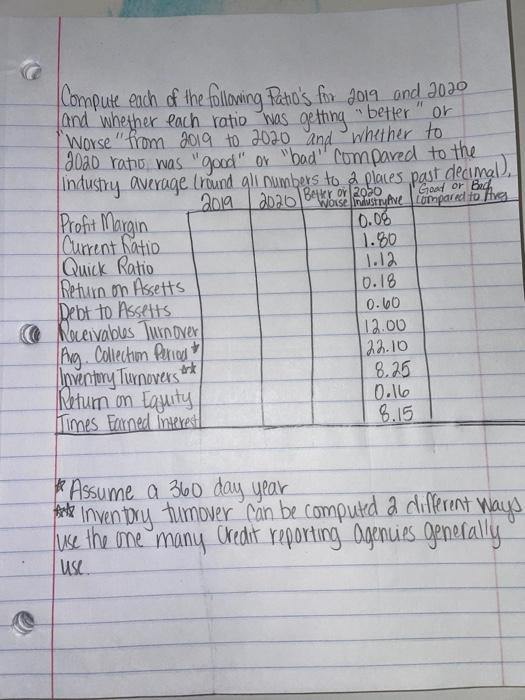 Compute each of the following Ratio's for 2019 and 2020
and whether each ratio was getting "better" or
"Worse" from 2019 to 2020 and whether to
2020 ratio was "good" or "bad" compared to the
industry average (round all numbers to 2 places past decimal).
2019 2020 Better or Worse 2020 Industry Ave Good or Bad Compared to Avg
Profit Margin 0.08
Current Ratio 1.80
Quick Ratio 1.12
Return on Assetts 0.18
Debt to Assetts 0.60
Receivables Turnover 12.00
Avg. Collection Period * 22.10
Inventory Turnovers ** 8.25
Return on Equity 0.16
Times Earned Interest 8.15
* Assume a 360 day year
** Inventory turnover can be computed 2 different ways
use the one many credit reporting agencies generally
use.